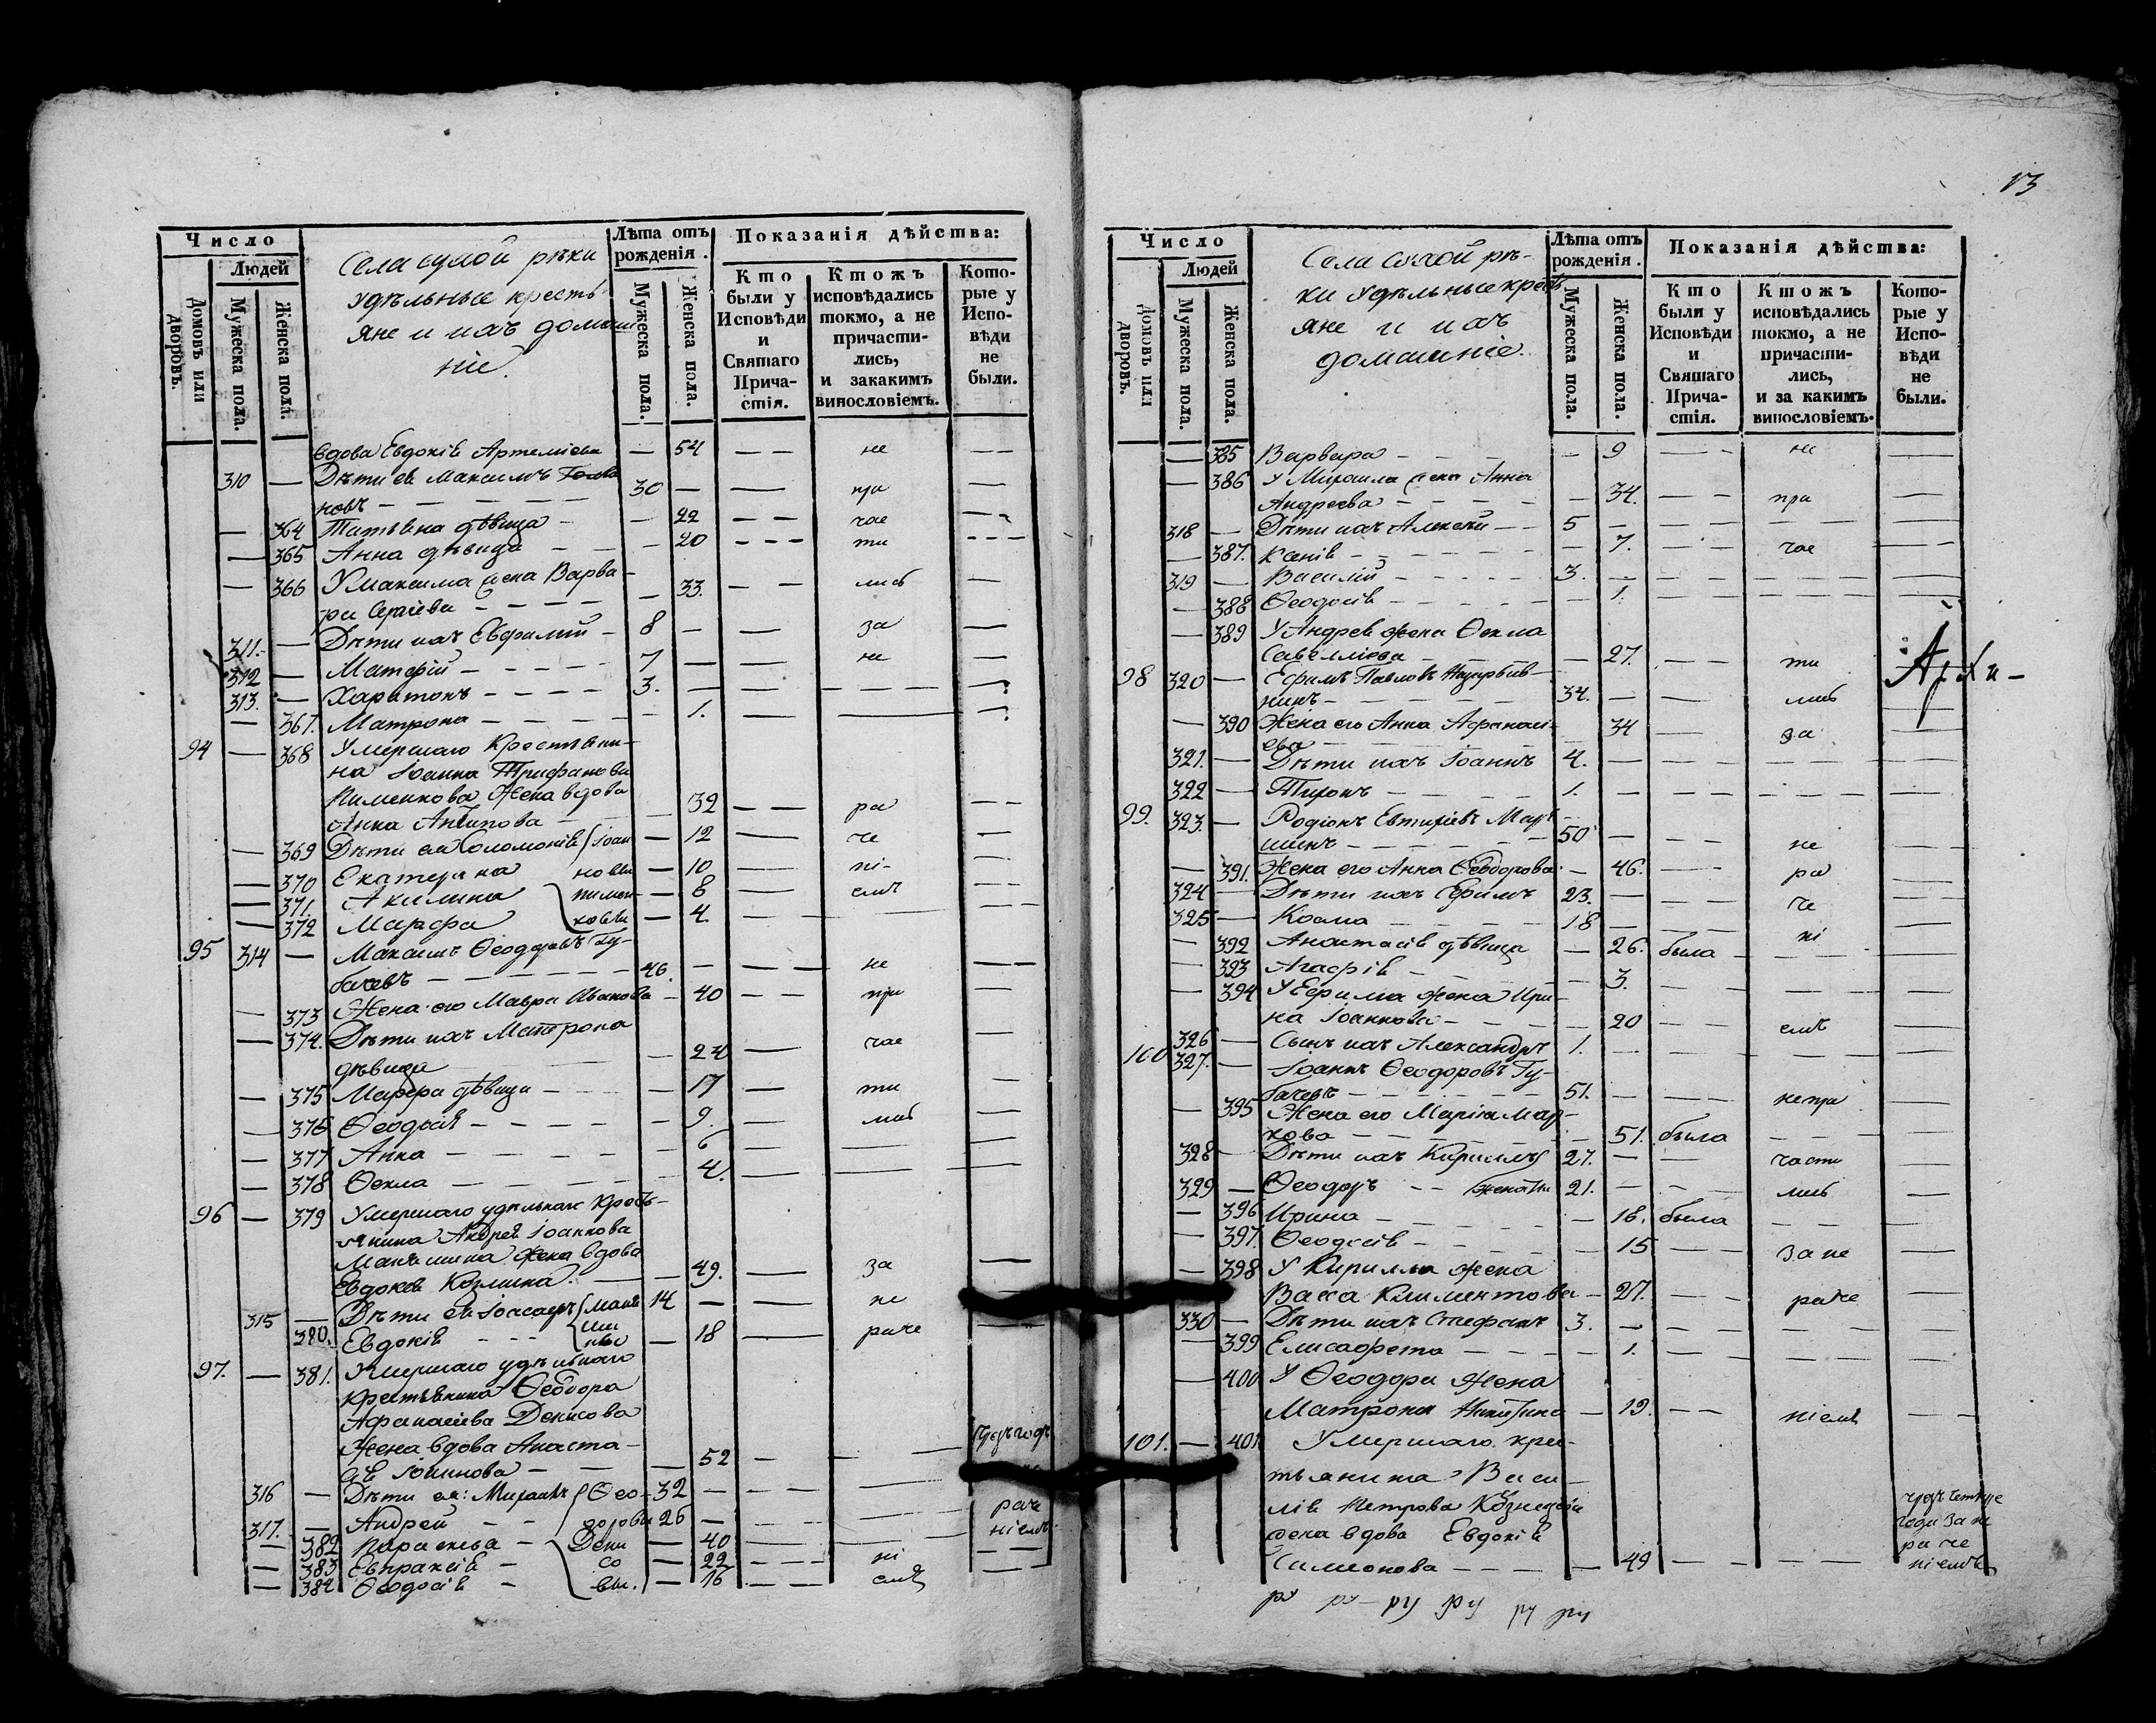 13
Число
Людей
Домовъ или дворовъ.
Мужеска пола.
Женска пола.
Села сухой рѣки
удѣльные кресть-
яне и ихъ домаш
ніе.
Лѣта отъ
рожденія.
Мужеска пола.
Женска пола.
Показанія дѣйства:
Кто
были у
Исповѣди
и
Святаго
Прича-
стія.
Ктожъ
исповѣдались
токмо, а не
причасти-
лись,
и закакимъ
винословіемъ.
Кото-
рые у
Испо-
вѣди
не
были.
вдова Евдокія Артеміева — 54 — — не — —
310 — Дѣти ея Максимъ
новъ — — 30 — — при —
— 364 Татьяна дѣвица — — 22 — — час —
— 365 Анна дѣвица — — 20 — — ти — —
— 366 У максима жена Варва-
ра Сергіева — — 33. — — лисъ —
311. — Дѣти ихъ Евфимій — 8 — — за —
312 — Матфій — 7 — — не —
313. — Харитонъ — 3. — — — —
— 367. Матрона — — 1. — — —
94 — 368 Умершаго Крестьяни-
на Іоанна Трифанова
Пименкова Жена вдова
Анна Антипова — 32 — — ра — —
— 369 Дѣти ея Соломонія Іоан — 12 — че —
— 370 Екатерина новы — 10 — ні- —
— 371. Акилина пимен — 8 — емъ —
— 372 Марфа ковы — 4. — — —
95 314 — Максимъ Ѳеодоровъ Гу-
бачевъ — 46. — — — не — —
— 373 Жена его Мавра Иванова — 40 — — при —
— 374. Дѣти ихъ Матрона
дѣвица — 24 — час —
— 375 Марфа дѣвица — — 17 — ти —
— 376 Ѳеодосія — — 9. — лисъ —
— 377 Анна — — 6 — — —
— 378 Ѳекла — — 4. — — —
96 — 379 Умершаго удѣльнаго кресть-
янина Андрея Іоаннова
Макъшина Жена вдова
Евдокія Козмина. — — 49. — за —
315 — Дѣти ея Іоасафъ Макъ 14 — — не —
380. Евдокія — ши ны — 18 — раче —
97. — 381. Умершаго удѣльнаго
крестьянина Ѳеодора
Афанасіева Денисова
Жена вдова Анаста-
сія Іоаннова — — 52 — —
316 — Дѣти ея: Миронъ Ѳео- 32 — — —
317. — Андрей — доровы 26 — — раче
— 382 Параскева — Дени — 40 — — ніемъ
— 383 Евпраксія — со — 22 — — ні — —
— 384 Ѳеодосія — вы. — 16 — — емъ —
Число
Людей
Домовъ или дворовъ.
Мужеска пола.
Женска пола.
Села Сухой рѣ-
ки удѣльные кресть
яне и ихъ
домашніе.
Лѣта отъ
рожденія.
Мужеска пола.
Женска пола.
Показанія дѣйства:
Кто
были у
Исповѣди
и
Святаго
Прича-
стія.
Ктожъ
исповѣдались
токмо, а не
причасти-
лись,
и за какимъ
винословіемъ.
Кото-
рые у
Испо-
вѣди
не
были.
— 385 Варвара — — 9 — — не —
— 386 У Мирона жена Анна
Андреева — — 34. — — при —
318 — Дѣти ихъ Алексѣй — 5 — — — —
— 387. Ксенія — — 7. — — час —
319 — Василій — 3. — — — —
— 388 Ѳеодосія — — 1. — — —
— 389 У Андрея жена Ѳекла
Савелліева — — 27. — — ти
Архи-
98 320 — Ефимъ Павловъ
нинъ — 34. — — лисъ
— 390 Жена его Анна Афанасі-
ева — — 34 — за —
321. — Дѣти ихъ Іоаннъ 4. — — — —
322 — Тиронъ — 1. — — — —
99. 323. — Родіонъ Евтихіевъ Мар-
шинъ — 50 — — не —
— 391. Жена его Анна Ѳеодорова — 46. — ра —
324 — Дѣти ихъ Ефимъ 23. — — че —
325 — Косма — 18 — —
— 392 Анастасія дѣвица — 26. была — ні —
— 393 Агафія — — 3. — — —
— 394 У Ефима жена Ири-
на Іоаннова — — 20 — — емъ —
326 — Сынъ ихъ Александръ 1. — — — —
100 327. — Іоаннъ Ѳеодоровъ Гу-
бачевъ — 51. — — непри —
— 395 Жена его Марія Мар-
кова — — 51. была — —
328 — Дѣти ихъ Кириллъ 27. — — части —
329 — Ѳеодоръ — женаты 21. — — лисъ —
— 396 Ирина — — 18. была — —
— 397. Ѳеодосія — — 15 — — за не —
— 398 У Кирилла жена
Васса Климентова — 27. — — раче —
330 — Дѣти ихъ Стефанъ 3. — — — —
— 399 Елисавета — — 1. — — —
— 400 У Ѳеодора жена
Матрона Никитина — 19. — — ніемъ — —
101. — 401 Умершаго крес-
тьянина Васи-
лія Петрова Кознецова
жена вдова Евдокія
Симеонова — — 49 — — —
года за не
ра че
ніемъ
ру ру — ру ру ру ру